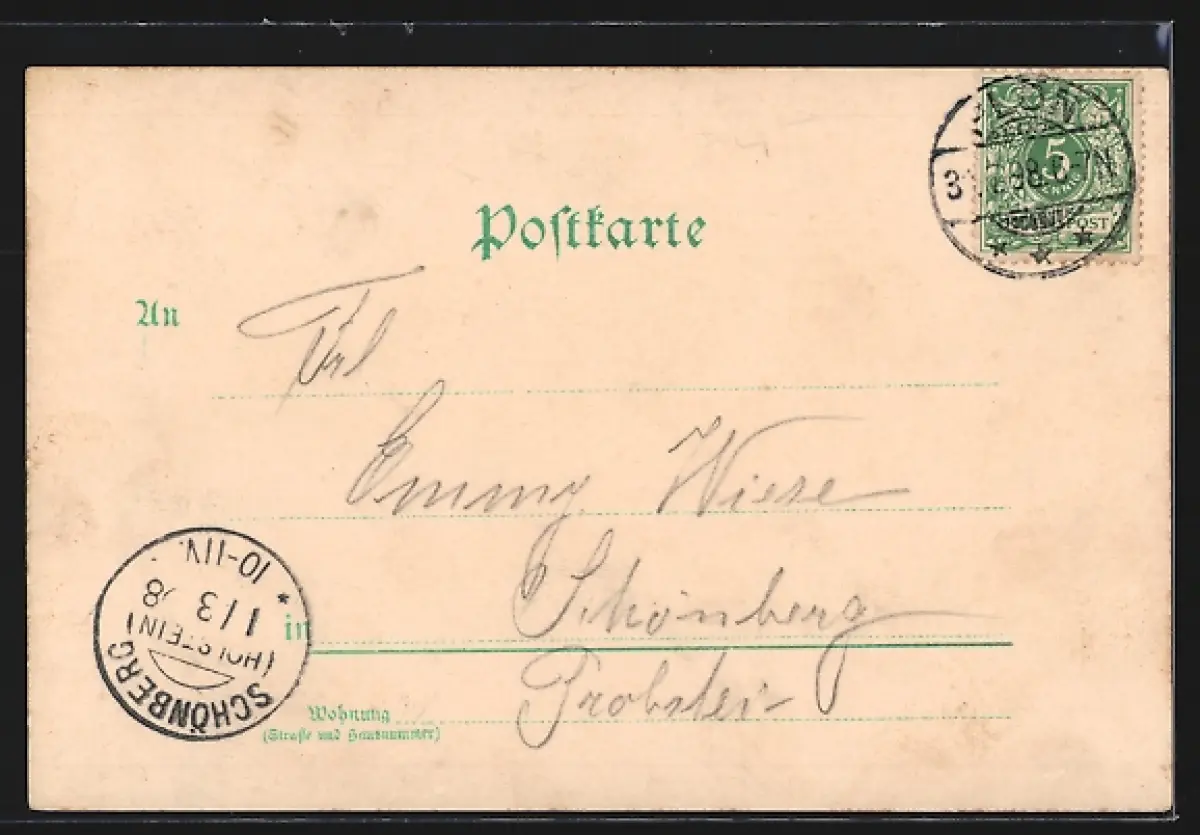 Postkarte
5
PFENNIG
POST
An
Frl.
Emmy Wiese
in Schönberg
Probstei
Wohnung
(Straße und Hausnummer)
SCHÖNBERG
(HOLSTEIN)
1/3 98
10-11V.